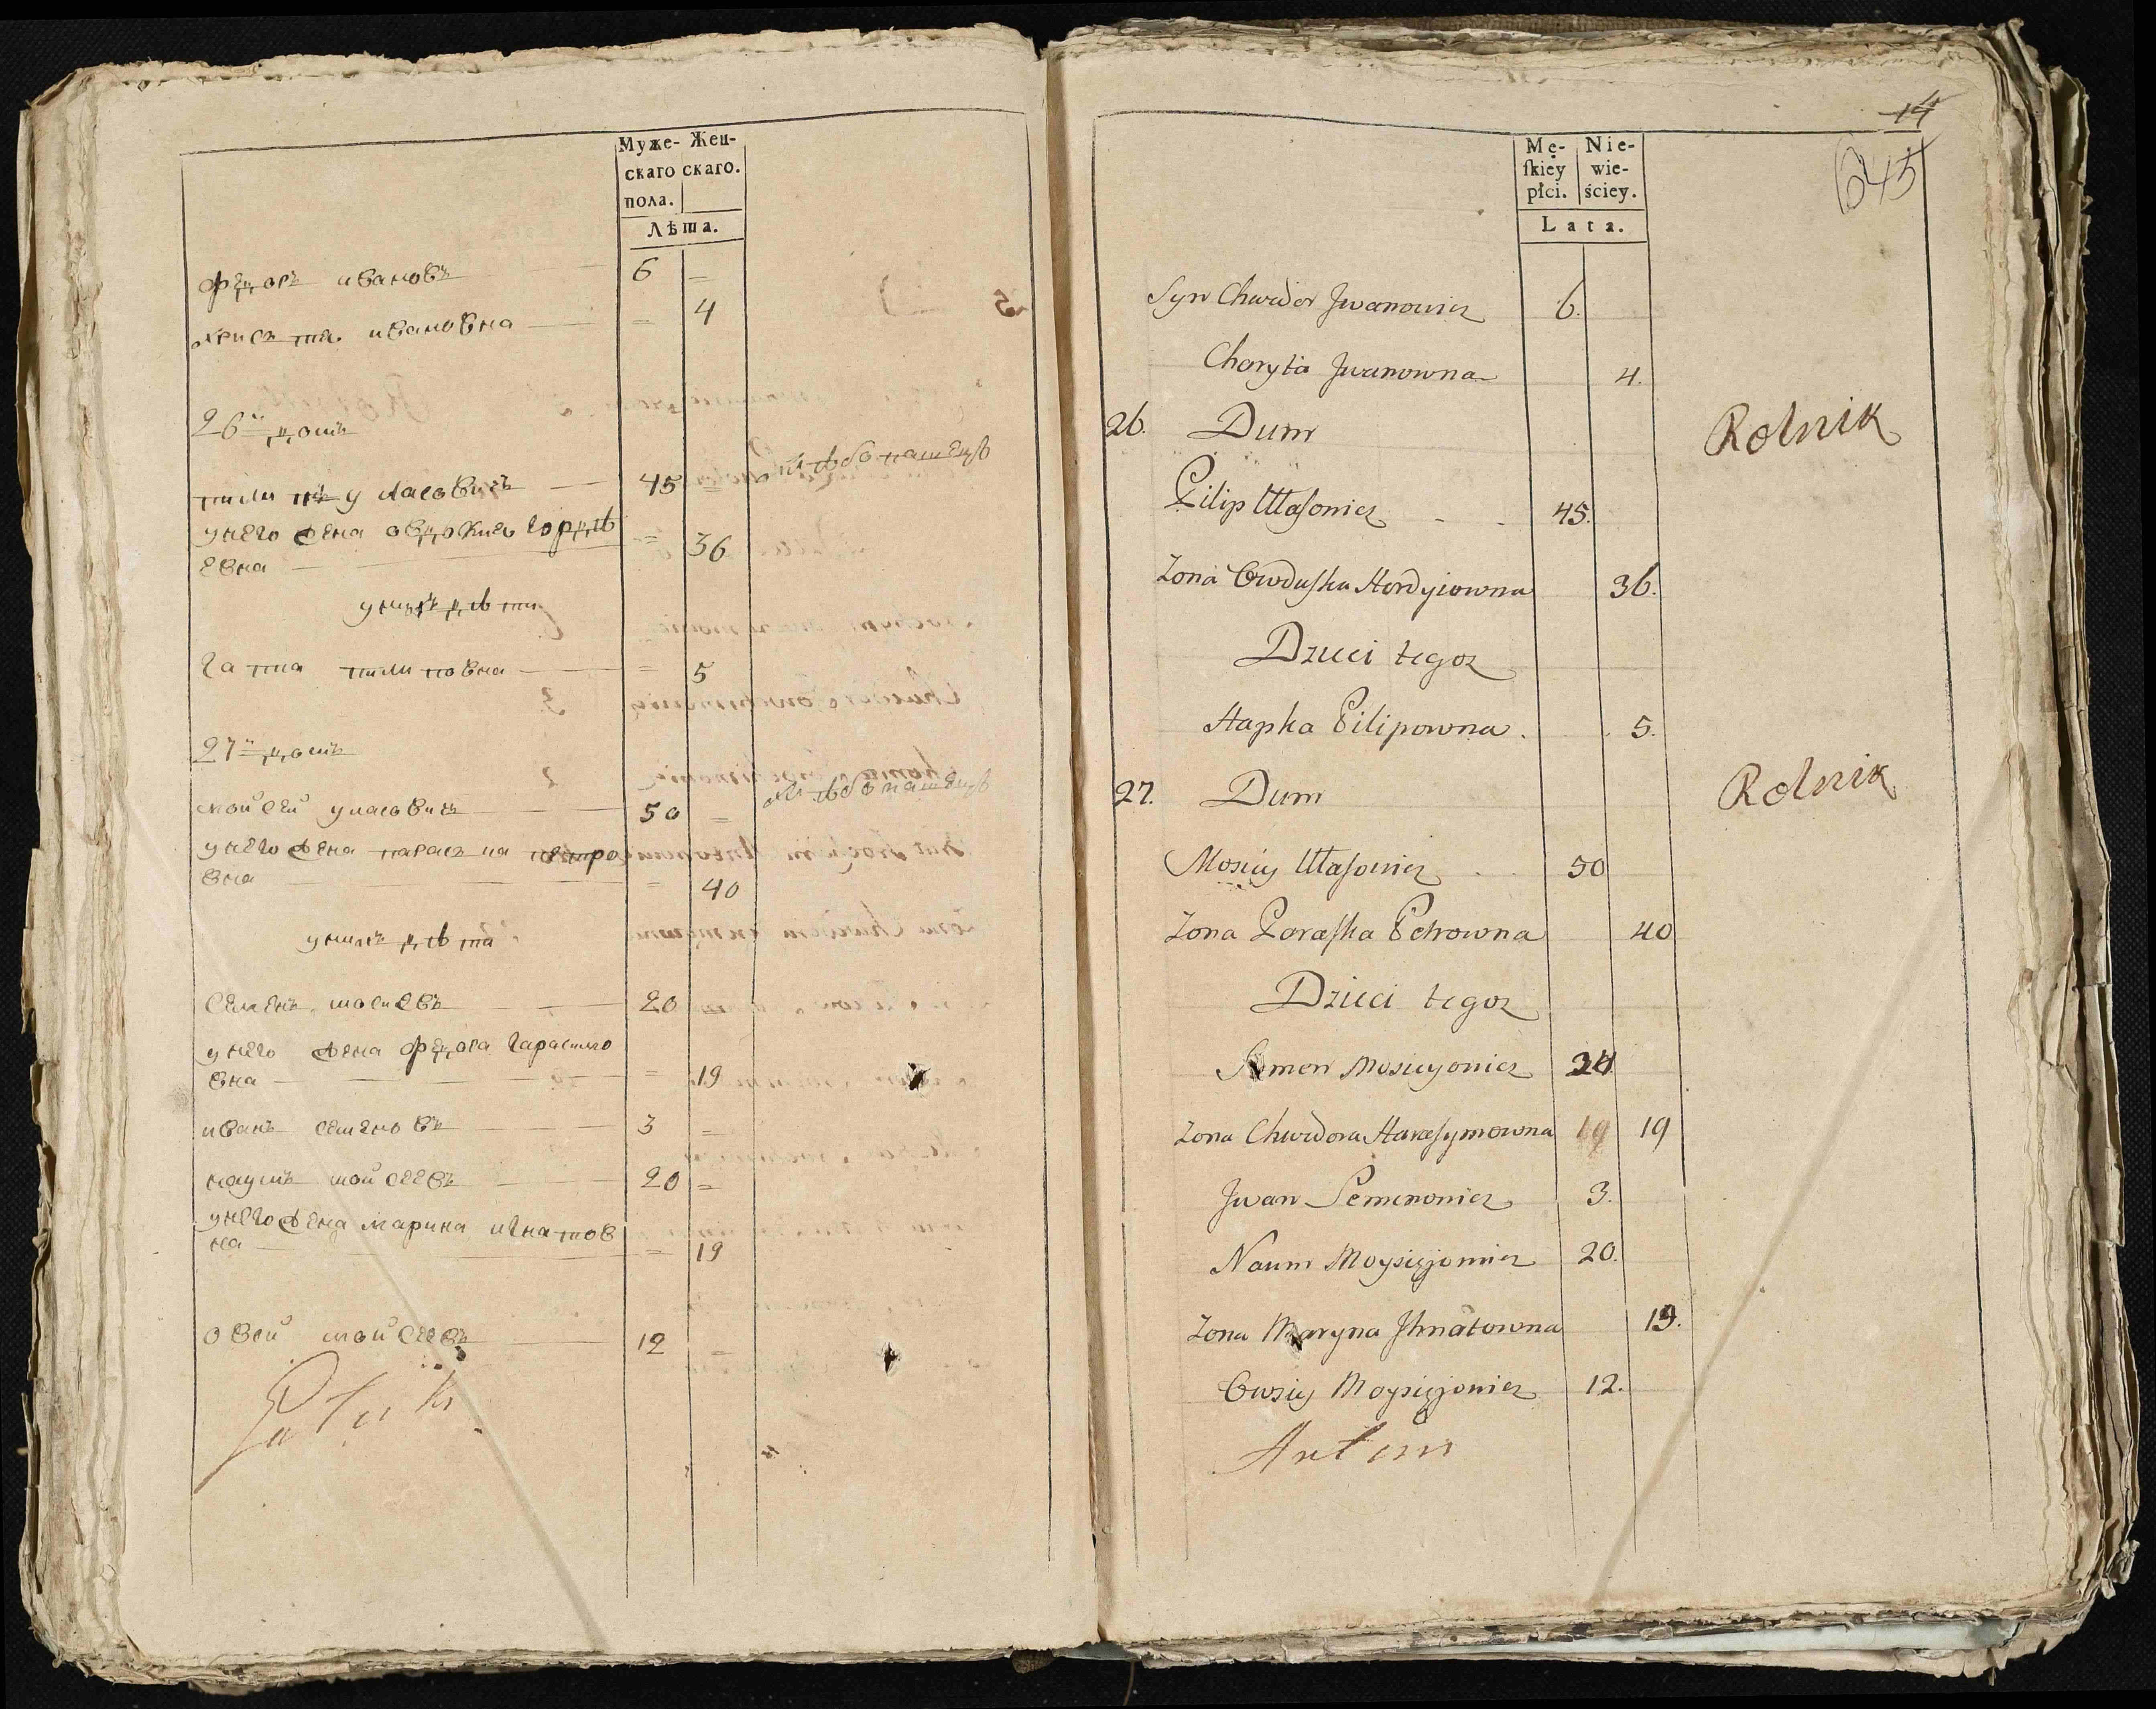 Муже- Жен-
скаго скаго.
пола.
Лѣта.
Федоръ ивановъ 6 =
ивановна = 4
26й домъ
пилипъ уласовичъ 45 = хлѣбопашецъ
унего жена овдокия гордѣ
евна = 36
унихъ дѣти
гапка пилиповна = 5
27й домъ
мойсей уласовичъ 50 = хлѣбопашецъ
унего жена параска петро
вна = 40
унихъ дѣти
Семенъ мосиевъ 20
унего жена Федора гарасимо
вна = 19
иванъ семеновъ 3 =
наумъ мойсеевъ 20 =
унего жена марина игнатов
на = 19
овсий мойсеевъ 12 =
14
645
Mę- Nie-
ſkiey wie-
płci. ściey.
Lata.
Syn Chwedor Jwanowicz 6.
Charyta Jwanowna 4.
26. Dum Rolnik
Pilip Ułaſowicz 45.
Zona Owduſka Hordyiowna 36.
Dzieci tegoz
Hapka Pilipowna. 5.
27. Dum Rolnik
Mosiey Ułaſowicz 50
Zona Paraſka Petrowna 40
Dzieci tegoz
Semen Mosieyowicz
Zona Chwedora Haraſymowna 19 19
Jwan Semenowicz 3.
Naum Moysiejowicz 20.
Zona Maryna Jhnatowna 19.
Owsiey Moysiejowicz 12.